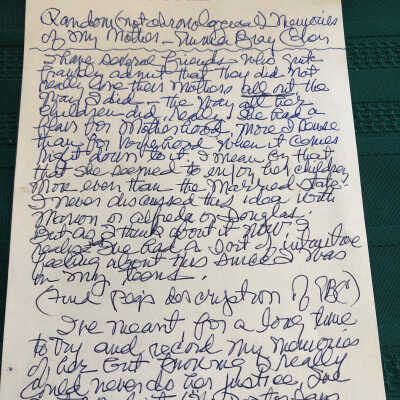 Random (not chronological) Memories
of my Mother - Bray
I have several friends who quite
frankly admit that they did not
really love their mothers all out the
way I did - the way all her
children did, really. She had a
flair for motherhood, more I
than for when it comes
right down to it. I mean by that
that she seemed to enjoy her children
more even than the married state.
I never discussed this idea with
Marion or Alfreda or Douglas;
But as I think about it now, I
realize I've had a sort of intuitive
feeling about this since I was
in my teens.
(And Pep's description of)
I've meant, for a long time
to try and record my memories
of her but knowing I really
could never do her justice, I've